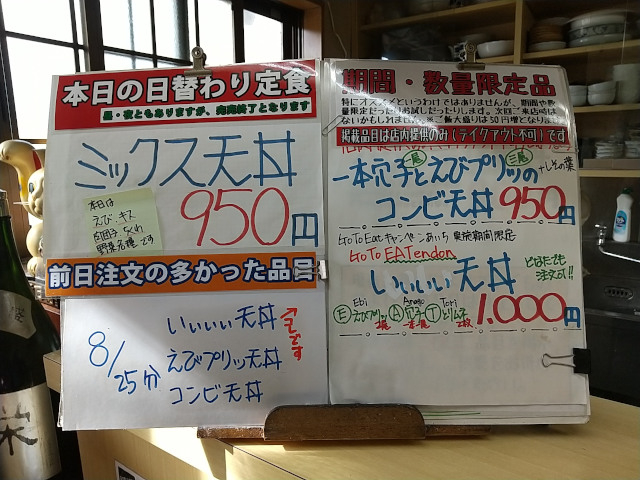 本日の日替わり定食
昼・夜ともありますが、完売終了となります
ミックス天丼
950円
本日は
えび・キス
野菜各種です
前日注文の多かった品目
8/25分
いいいい天丼
えびプリッツ天丼
コンビ天丼
↑そです
期間・数量限定品
特にオススメというわけではありませんが、期間や数
量限定だったり
ないかもしれません。ご飯大盛りは50円増となり
掲載品目は店内提供のみ(テイクアウト不可)です
一本穴子とえびプリッツの
一尾
三尾
+しその葉
コンビ天丼 950円
Go To Eat キャンペーンあいち 実施期間限定
Go To EATendon
いいいい天丼
どなたでも
注文可!!
Ebi Anago Tori
Ⓔえびプリッツ Ⓐ穴子 Ⓣとりムネ
1.000円